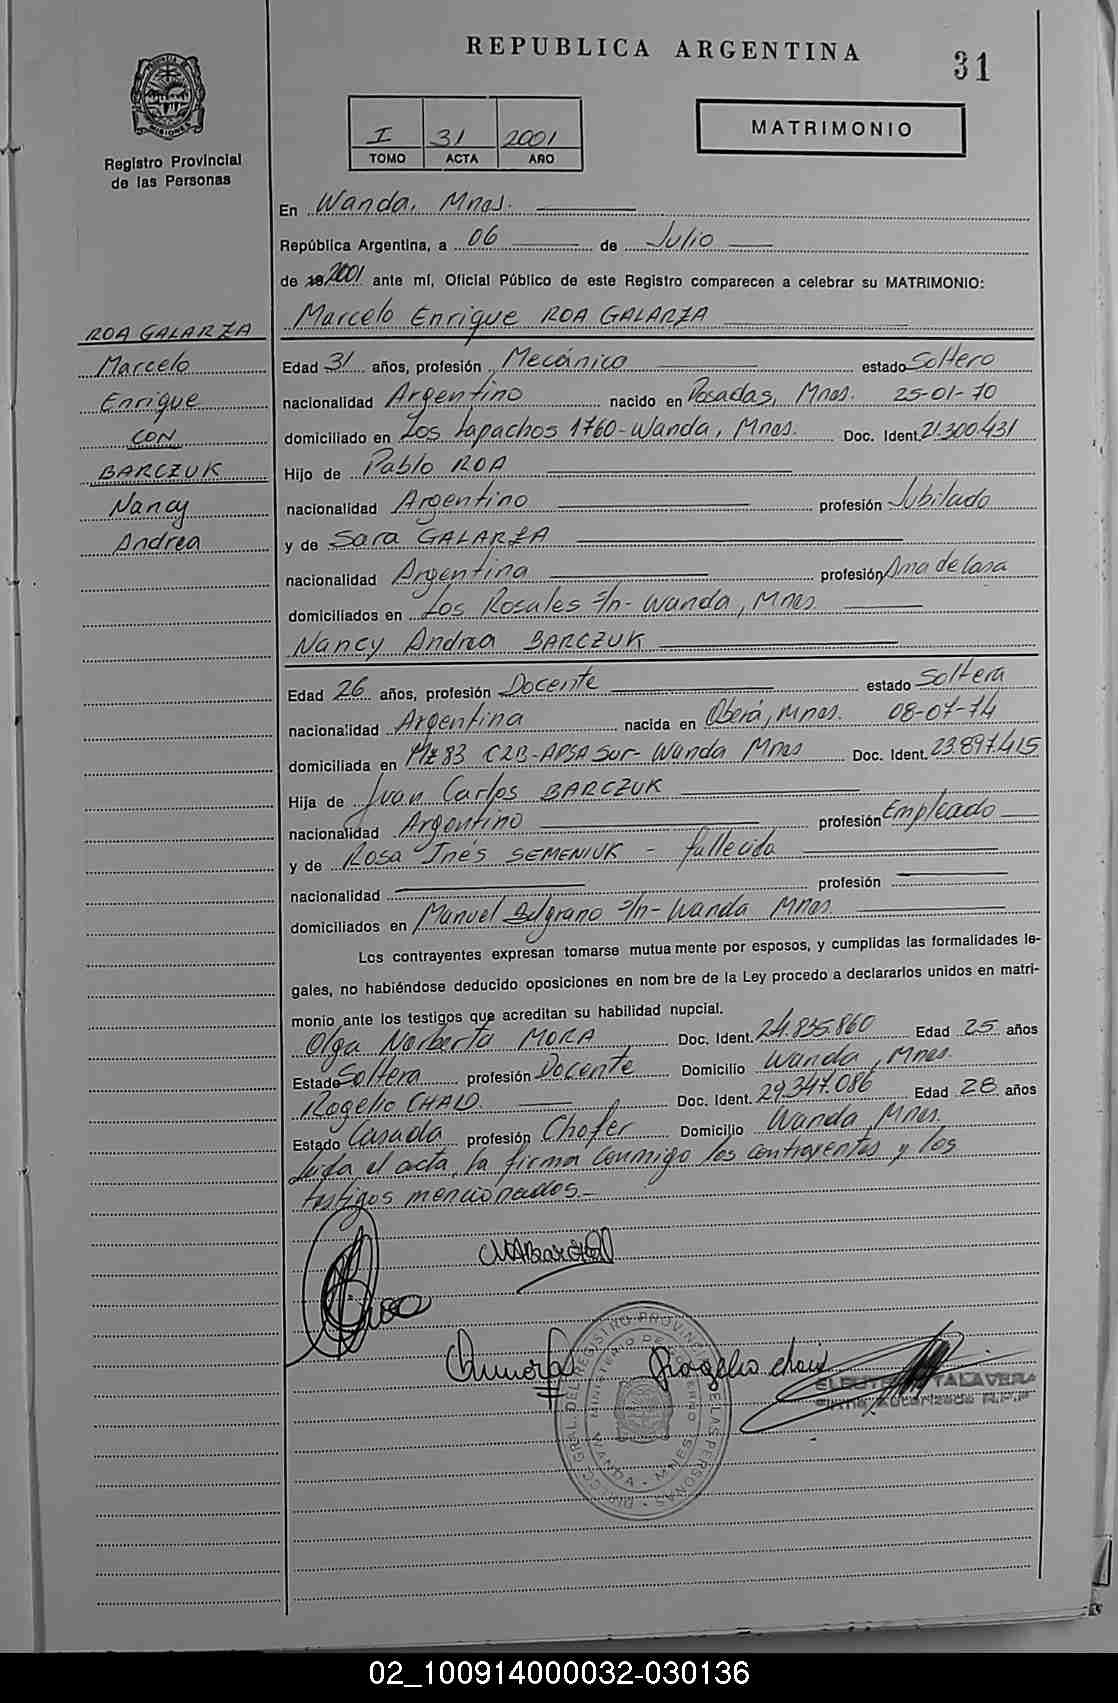 REPUBLICA ARGENTINA
31
PROVINCIA DE MISIONES
Registro Provincial
de las Personas
I 31 2001
TOMO ACTA AÑO
MATRIMONIO
En Wanda, Mnes.
República Argentina, a 06 de Julio
de 2001 ante mí, Oficial Público de este Registro comparecen a celebrar su MATRIMONIO:
Marcelo Enrique ROA GALARZA
ROA GALARZA
Marcelo
Enrique
CON
BARCZUK
Nancy
Andrea
Edad 31 años, profesión Mecánico estado Soltero
nacionalidad Argentino nacido en Posadas, Mnes. 25-01-70
domiciliado en Los Lapachos 1760-Wanda, Mnes. Doc. Ident. 21.300.431
Hijo de Pablo ROA
nacionalidad Argentino profesión Jubilado
y de Sara GALARZA
nacionalidad Argentina profesión Ama de Casa
domiciliados en Los Rosales s/n- Wanda, Mnes.
Nancy Andrea BARCZUK
Edad 26 años, profesión Docente estado Soltera
nacionalidad Argentina nacida en Oberá, Mnes. 08-07-74
domiciliada en Mz 83 C2B-APSA Sur- Wanda Mnes Doc. Ident. 23.897.415
Hija de Juan Carlos BARCZUK
nacionalidad Argentino profesión Empleado
y de Rosa Inés SEMENIUK - fallecida
nacionalidad profesión
domiciliados en Manuel Belgrano s/n- Wanda Mnes.
Los contrayentes expresan tomarse mutua mente por esposos, y cumplidas las formalidades le-
gales, no habiéndose deducido oposiciones en nom bre de la Ley procedo a declararlos unidos en matri-
monio ante los testigos que acreditan su habilidad nupcial.
Olga Norberta MORA Doc. Ident. 24.835.860 Edad 25 años
Estado Soltera profesión Docente Domicilio Wanda, Mnes.
Rogelio CHALO. Doc. Ident. 29.347.086 Edad 28 años
Estado Casada profesión Chofer Domicilio Wanda, Mnes.
Leída el acta, la firman conmigo los contrayentes y los
testigos mencionados.-
ELEUTERIO TALAVERA
Firma Autorizada R.P.P
WANDA - MNES
02_100914000032-030136